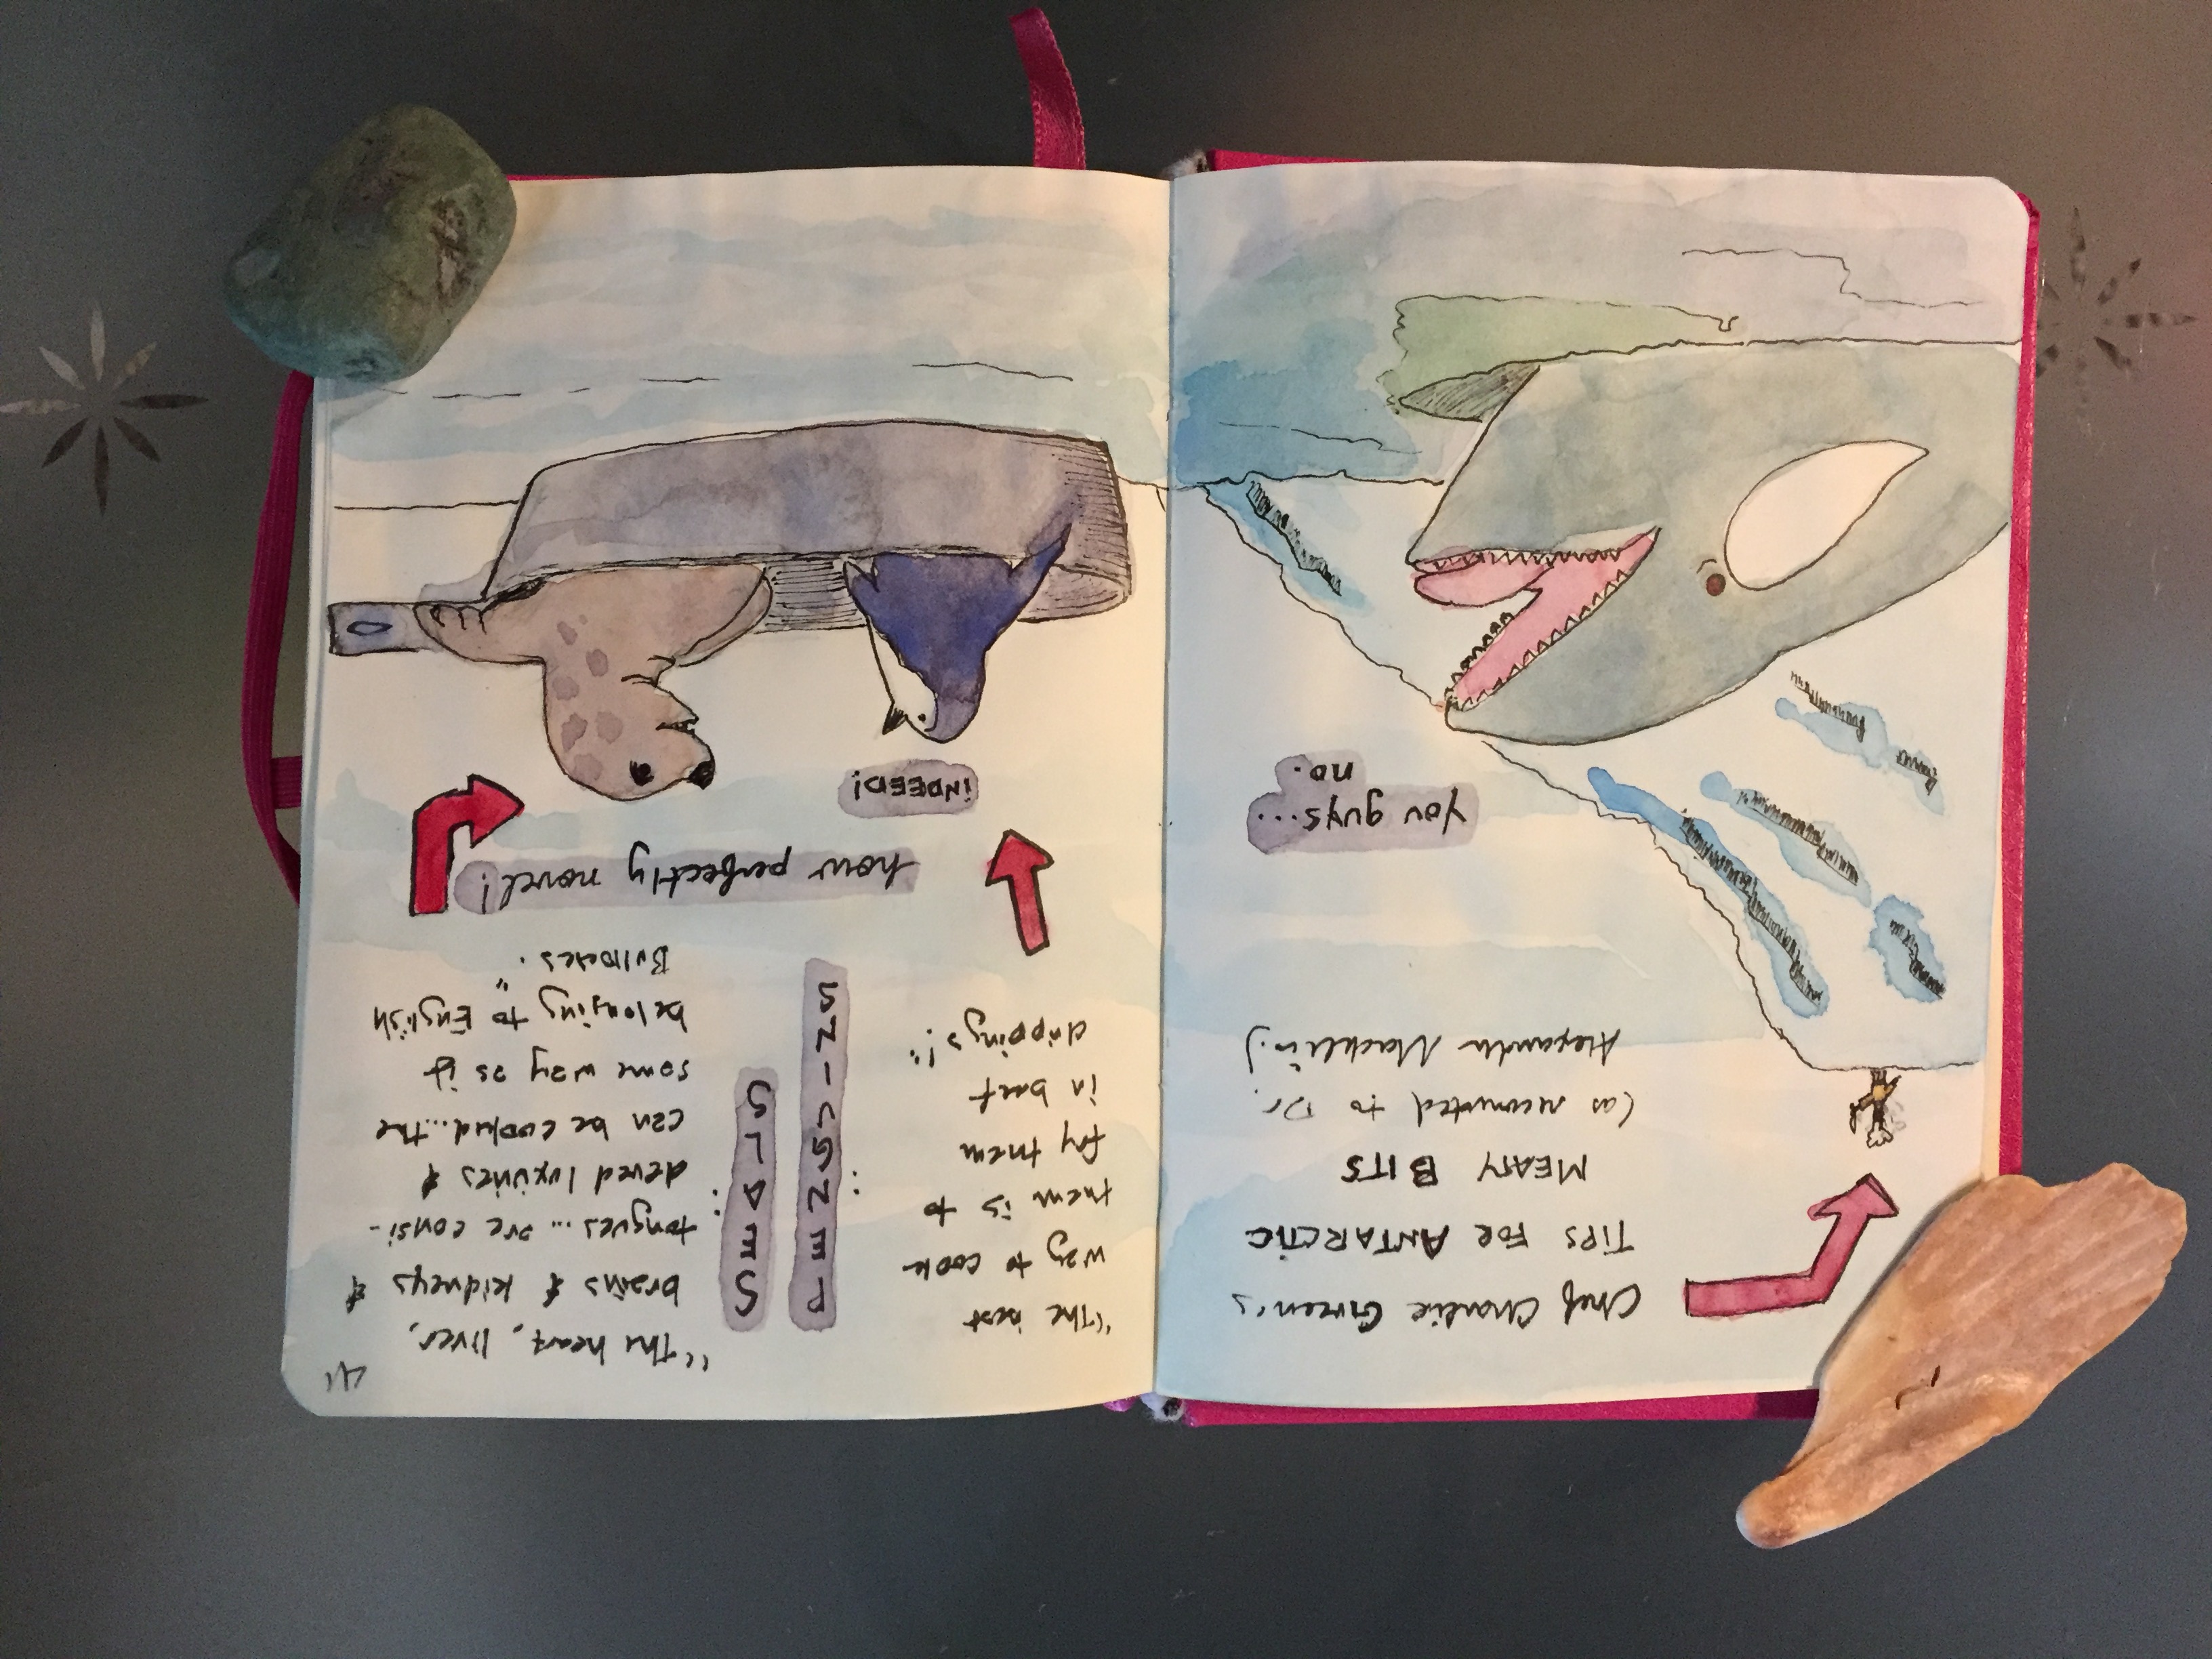 Chef Charlie Green's
TIPS FOR ANTARCTIC
MEATY BITS
(as recounted to Dr.
Alexander Macklin.)
You guys...
no.
41
"The best
way to cook
them is to
fry them
in beef
drippings!"
: PENGUINS
SEALS :
"The heart, liver,
brains & kidneys &
tongues... are consi-
dered luxuries &
can be cooked... the
same way as if
belonging to English
Bullocks."
how perfectly novel!
INDEED!